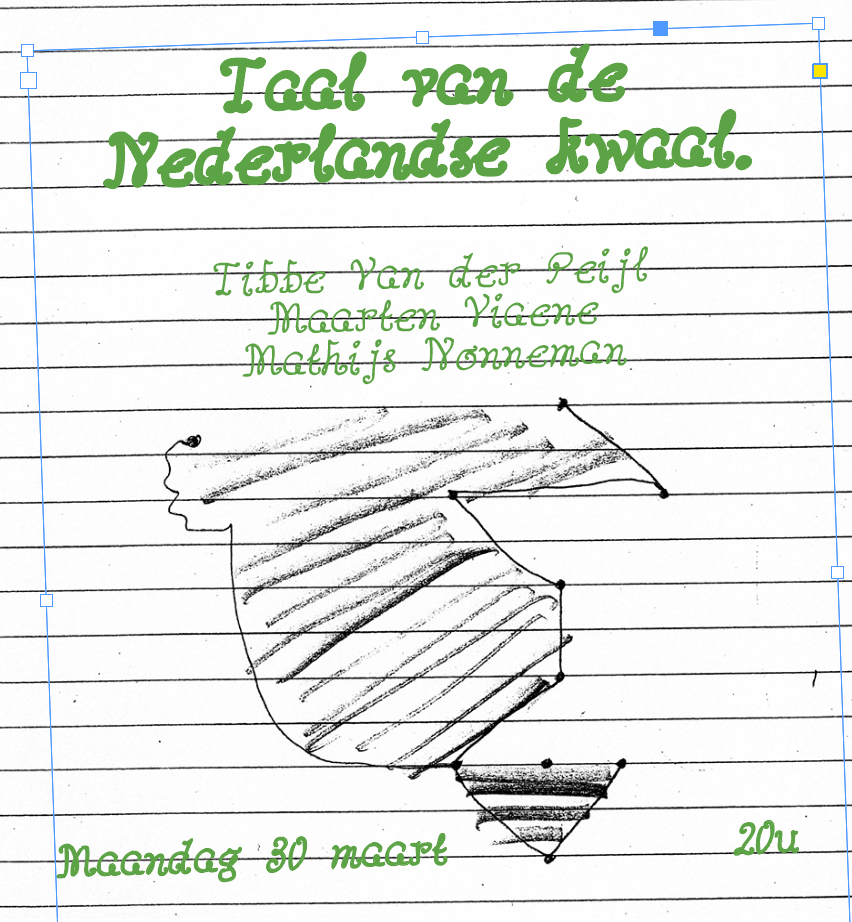 Taal van de
Nederlandse kwaal.
Tibbe Van der Peijl
Maarten Viaene
Mathijs Nonneman
Maandag 30 maart
20u